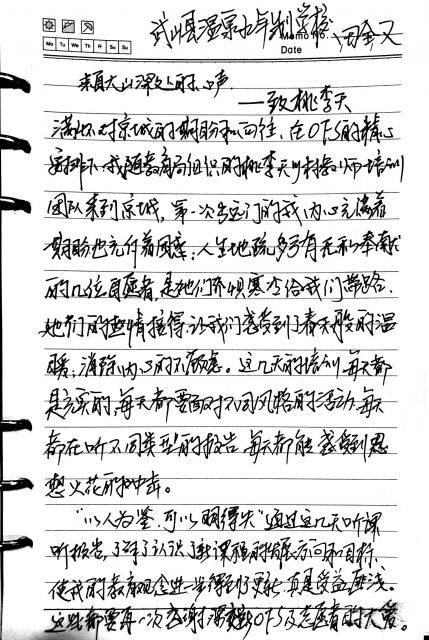 武山县温泉水卓刘学校 田金又
Memo No.
Mo Tu We Th Fr Sa Su
Date
来自大山深处的心声
——致桃李天
满怀对京城的期盼和向往，在OFS的精心
安排下我随教育局组织的桃李天下村教师培训
团队来到京城，第一次出远门的我，内心充满着
期盼也充斥着困惑；人生地疏多亏有无私奉献
的几位自愿者，是她们不惧寒冷给我们带路。
她们的热情接待，让我们感受到了春天般的温
暖，消除内心的不顾虑。这几天的培训，每天都
是充实的，每天都要面对不同风格的活动，每天
都在听不同类型的报告，每天都能感受到思
想火花的冲击。
“以人为鉴，可以明得失”通过这几天听课
听报告，了解了认识了新课程的展示方向和目标，
使我的教育观念进一步得到了更新，真是受益匪浅。
这些都要再一次感谢深圳OFS及志愿者的大爱。